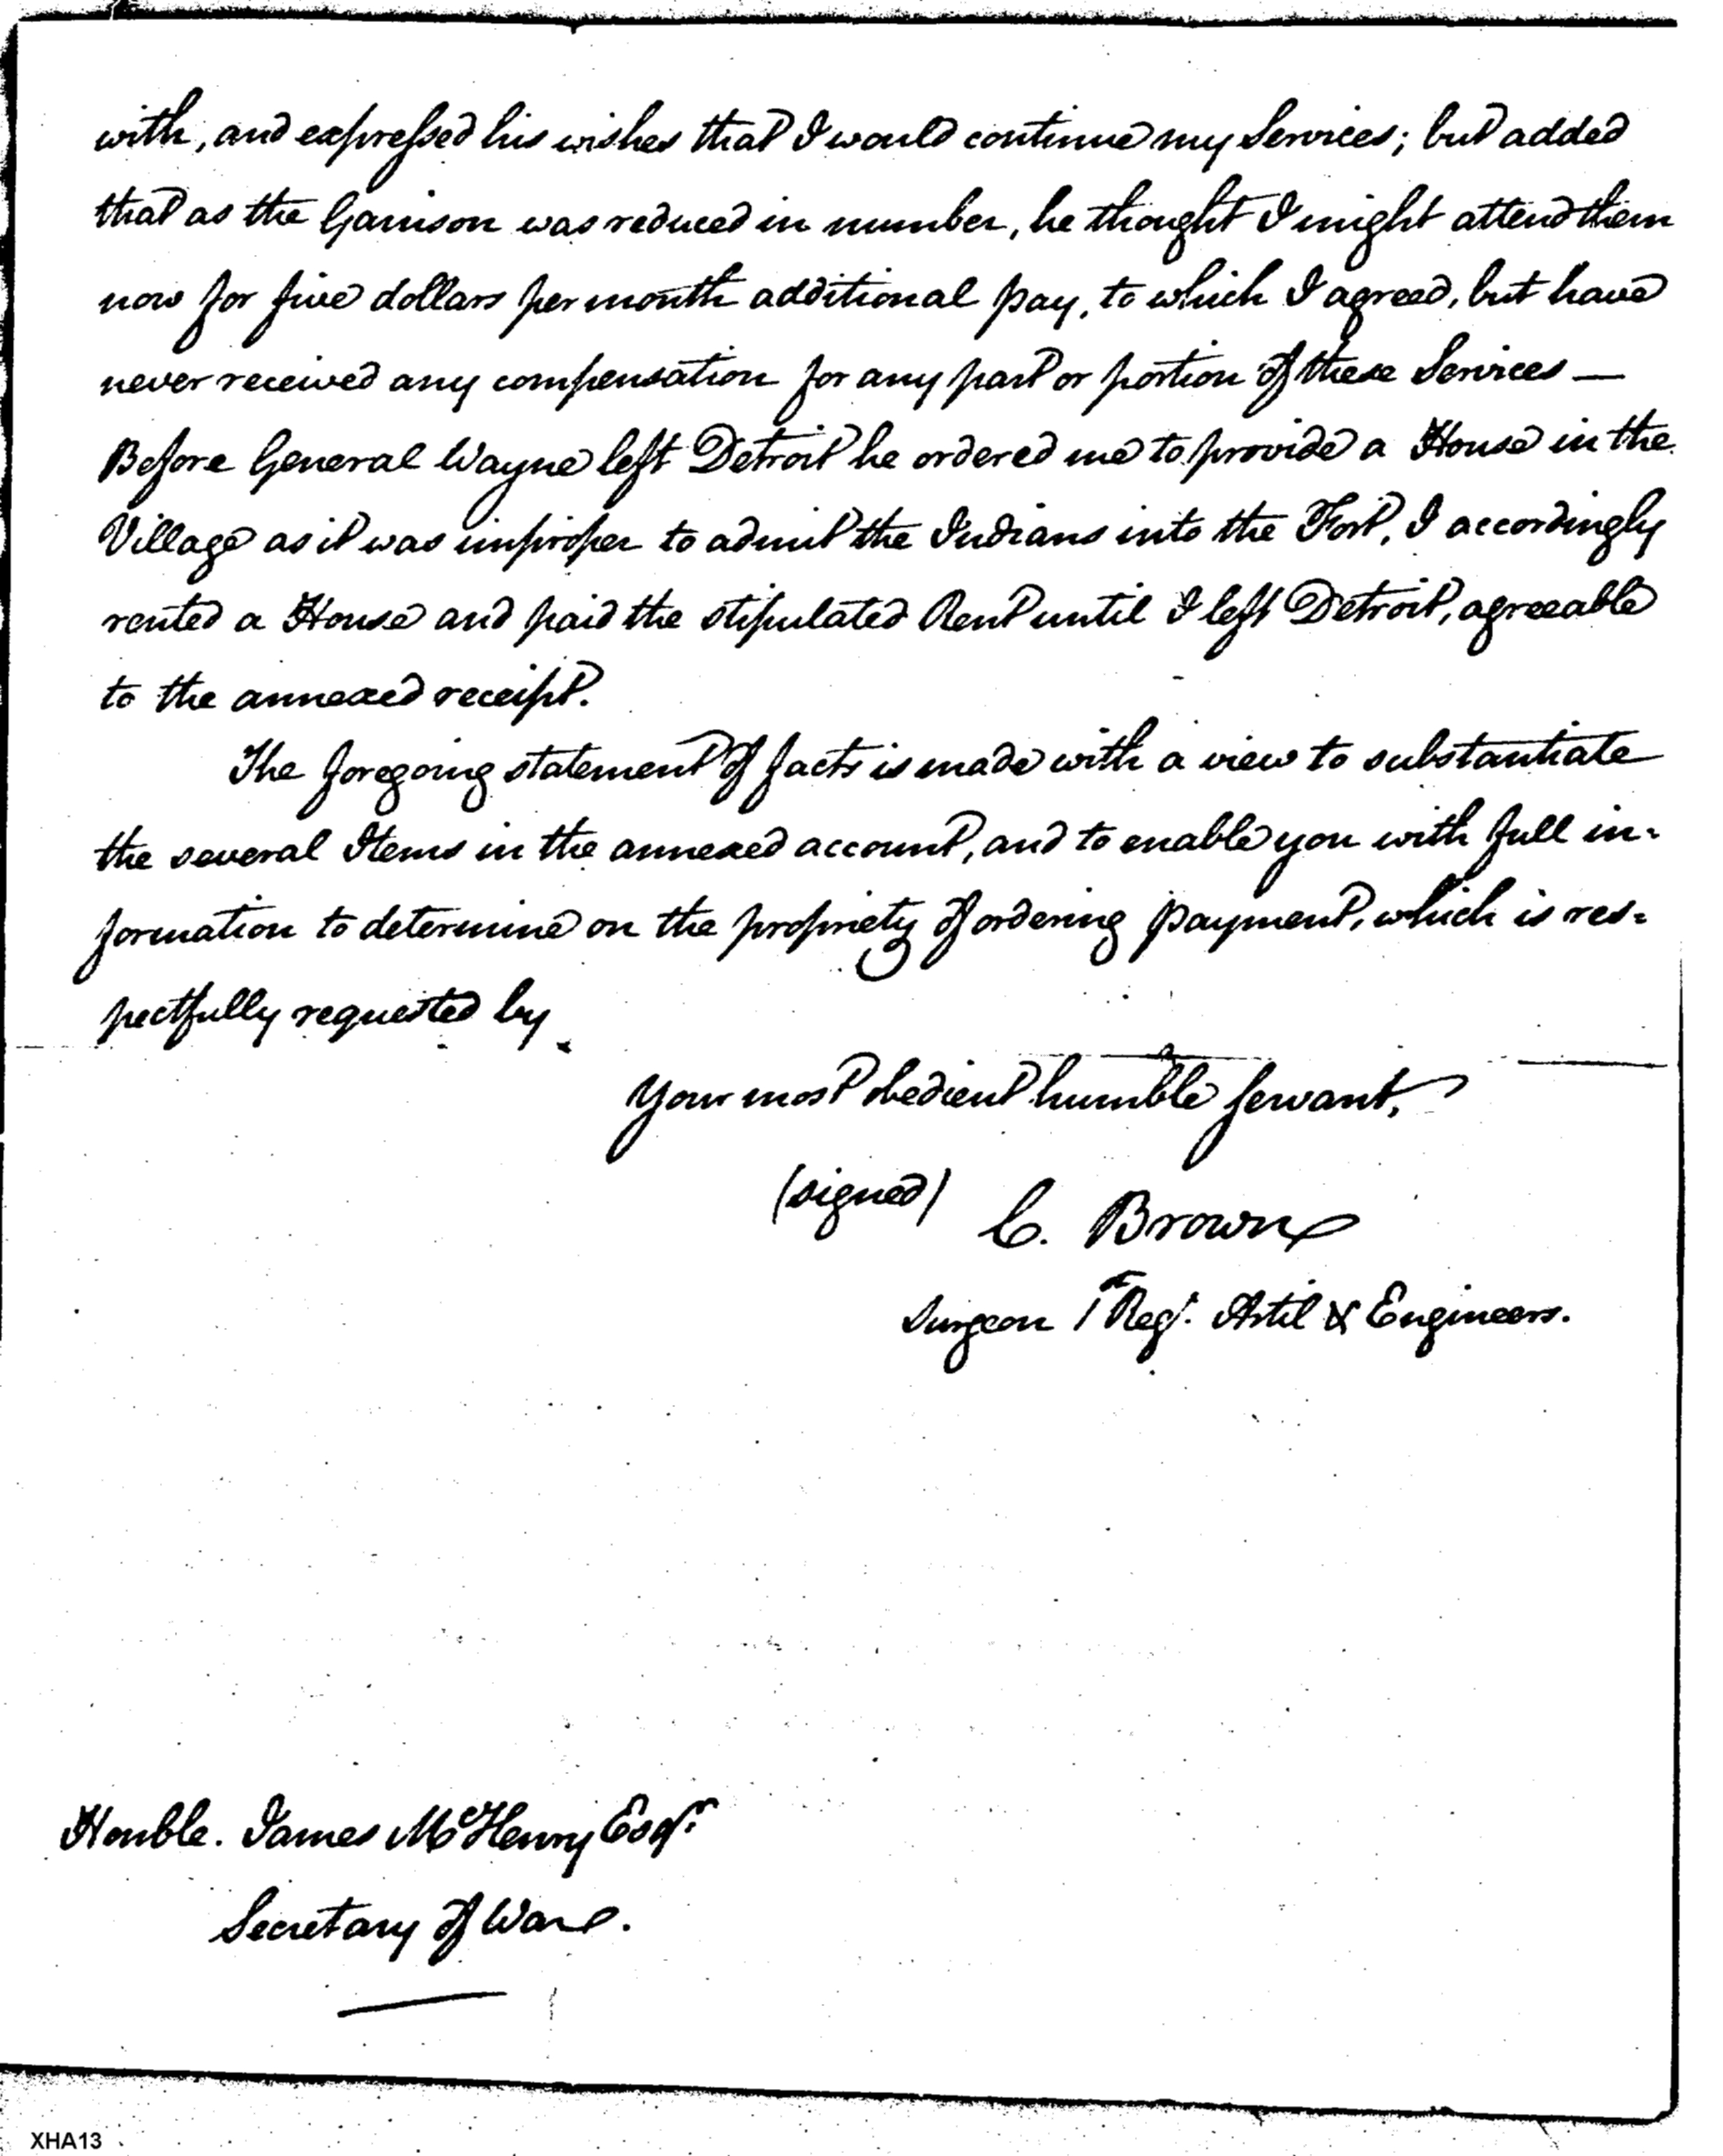 with, and expressed his wishes that I would continue my Services; but added
that as the Garrison was reduced in number, he thought I might attend them
now for five dollars per month additional pay, to which I agreed, but have
never received any compensation for any part or portion of these Services —
Before General Wayne left Detroit he ordered me to provide a House in the
Village as it was improper to admit the Indians into the Fort, I accordingly
rented a House and paid the stipulated Rent until I left Detroit, agreeable
to the annexed receipt.
The foregoing statement of facts is made with a view to substantiate
the several Items in the annexed account, and to enable you with full in=
formation to determine on the propriety of ordering payment, which is res=
pectfully requested by
Your most obedient humble servant,
(signed) C. Brown
Surgeon 1st Regt. Artil & Engineers.
Honble. James McHenry Esqr.
Secretary of War.
XHA13